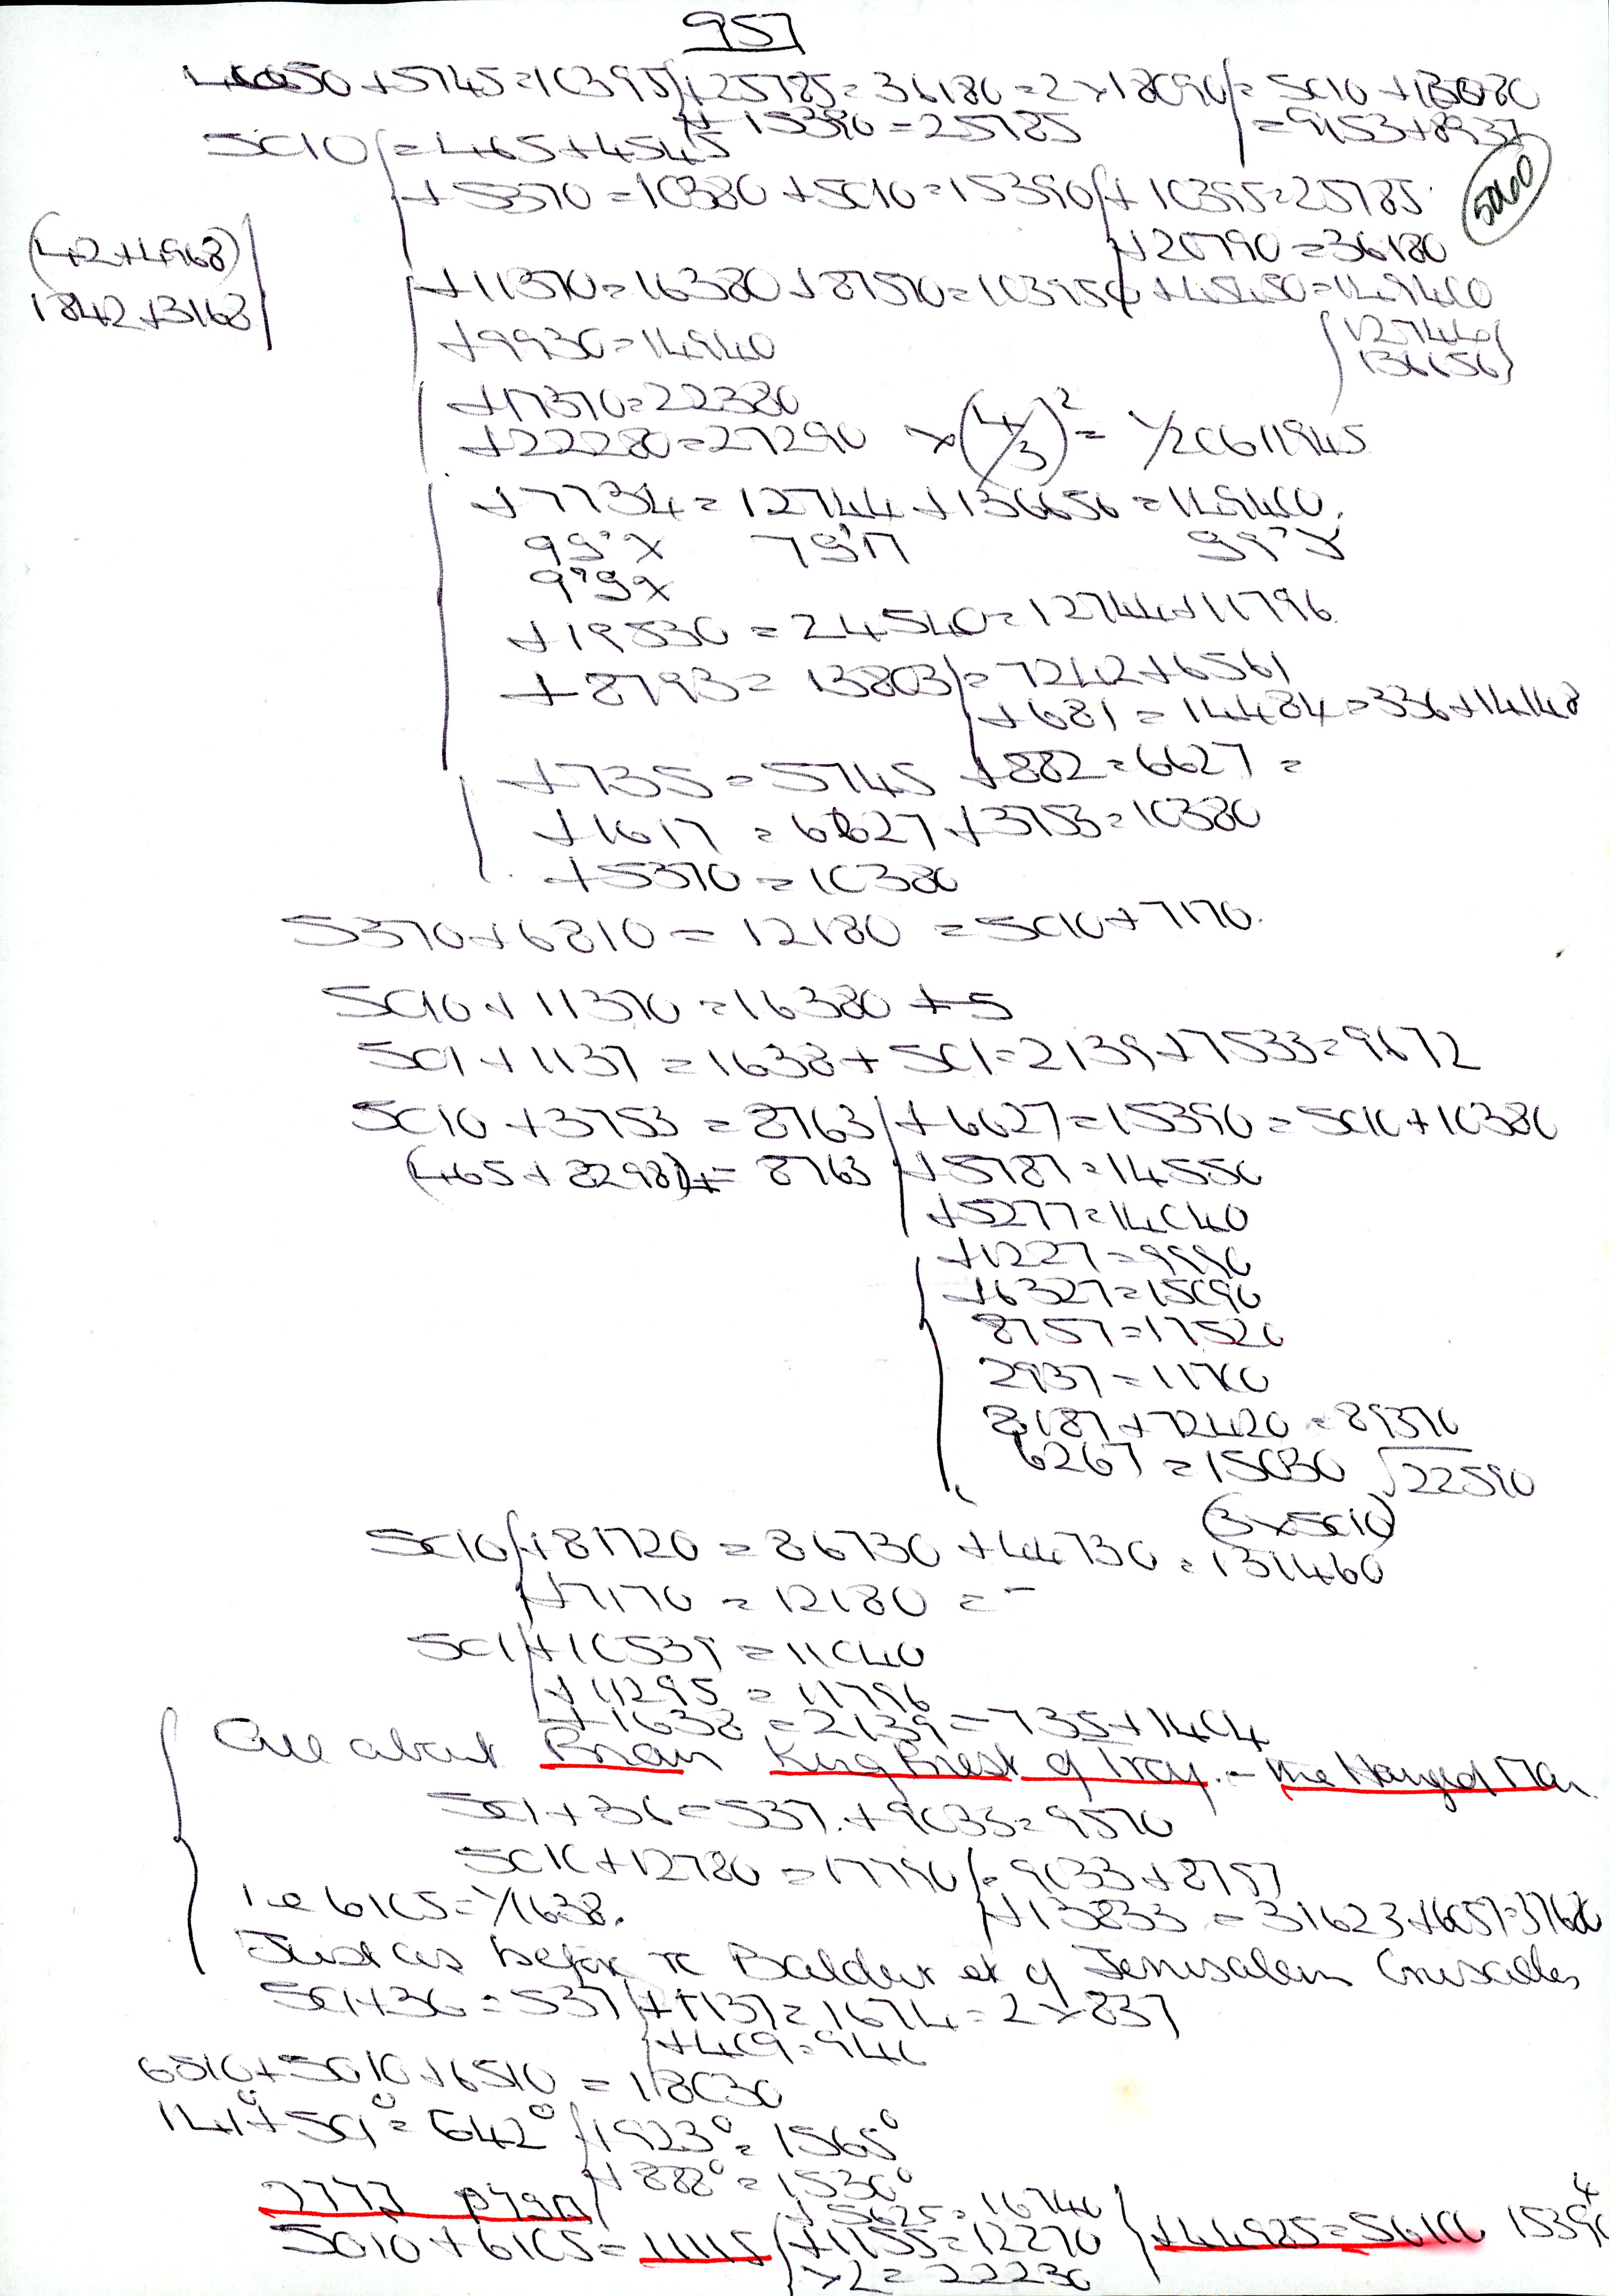 957
+5745=10395 +25785=36180=2×18090 =5010+13080
+15390=25785 =9153+8937
5010 =465+4545
+5370=10380+5010=15390 +10395=25785
5010
(42+4968)
+20790=36180
1842+3168
+11370=16380+87570=103950+45450=149400
+9930=14940
127440
136656
+17370=22380
+22280=27290 ×(4/3)²= 1/20611945
+7734=12744+136656=149400.
+19530=24540=12744+11796
+8793=13803 =7242+6561
+681=14484=336+14148
+735=5745 +882=6627=
+1617=6627+3753=10380
+5370=10380
5370+6810=12180=5010+7170.
5010+11370=16380+5
501+1137=1638+501=2139+7533=9672
5010+3753=8763 +6627=15390=5010+10380
(465+8298)+=8763 +5787=14550
+5277=14040
+1227=9990
+6327=15090
8757=17520
2937=11700
8187+72420=89370
6267=15030 √22590
(3×5010)
5010 +81720=86730+44730=131460
+7170=12180=-
501 +10539=11040
+11295=11796
+1638=2139=735+1404
All about Brian King Priest of Troy.- The Hanged Man.
501+36=537.+9033=9570
5010+12780=17790 =9033+8757
i.e 6105=1/1638. +13833=31623+6057=37680
Just as before re Balder et of Jerusalem Crusades
501+36=537 +1137=1674=2×837
+409=946
6510+5010+6510=18030
141°+501°=642° +923°=1565°
+888°=1530°
+5625=16740
5010+6105=11115 +1155=12270 +44925=56100 15390
×2=22230